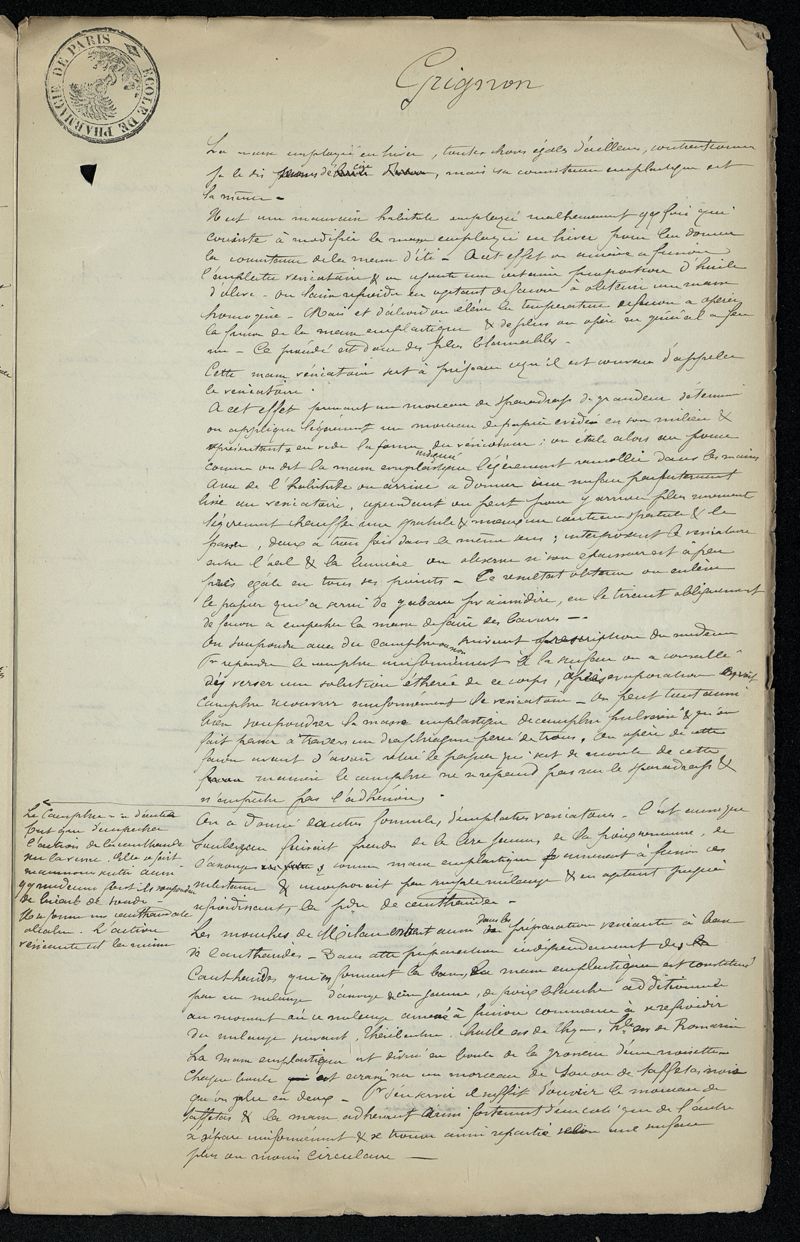 ÉCOLE DE PHARMACIE DE PARIS
Grignon
La masse employée en hiver, toutes choses égales d'ailleurs, contient comme
je le dis de cire, mais sa consistance emplastique est
la même -
Il est une mauvaise habitude employée malheureusement qqfois qui
consiste à modifier la masse employée en hiver pour lui donner
la consistance de la masse d'été - A cet effet on amène a fusion
l'emplâtre vésicatoire & on ajoute une certaine proportion d'huile
d'olive - on laisse refroidir en agitant de façon à obtenir une masse
homogène - Mais et d'abord on élève la température a opérer
la fusion de la masse emplastique & de plus on opère en général a feu
nu - Ce procédé est donc des plus blamables -
Cette masse vésicatoire sert à préparer ce qu'il est convenu d'appeler
le vésicatoire.
A cet effet prenant un morceau de sparadrap de grandeur déterminée
on applique légèrement un morceau de papier évidé en son milieu &
représentant en vide la forme du vésicatoire : on étale alors au pouce
comme on dit la masse emplastique légèrement ramollie dans les mains
Avec de l'habitude on arrive a donner une surface parfaitement
lisse au vésicatoire, cependant on peut pour y arriver plus surement
légèrement chauffer une spatule & la
passer, deux a trois fois dans le même sens ; interposant le vésicatoire
entre l'oeil & la lumière on observe si son épaisseur est à peu
près égale en tous ses points - Ce résultat obtenu on enlève
le papier qui a servi de gabarit pr ainsi dire, en le tirant obliquement
de façon a empêcher la masse de faire des bavures -
On saupoudre avec du camphre suivant prescription du médecin
Pr répandre le camphre uniformément à la surface on a conseillé
d'y verser une solution éthérée de ce corps, après évaporation
camphre recouvre uniformément le vésicatoire - On peut tout aussi
bien saupoudrer la masse emplastique de camphre pulvérisé & qu'on
fait passer à travers un diaphragme percé de trous. On opère de cette
façon avant d'avoir retiré le papier qui sert de moule de cette
manière le camphre ne se répand pas sur le sparadrap &
n'empêche pas l'adhésion.
Le Camphre
but que d'empêcher
l'action de la cantharide
sur la vessie. Elle se fait
néanmoins sentir aussi
qq médecins font ils saupoudrer
de bicarb de soude -
Il se forme un cantharidate
alcalin. L'action
vésicante est la même
On a donné d'autres formules d'emplâtres vésicatoires - C'est ainsi que
faisait fondre de la cire jaune, de la poix, de
l'axonge comme masse emplastique amenait à fusion ces
substances & incorporait par simple mélange & en agitant jusqu'à
refroidissement, la pdre de cantharides -
Les mouches de Milan sont aussi une préparation vésicante à base
de cantharides - Dans cette préparation indépendamment des
Cantharides qui en forment la base, la masse emplastique est constituée
par un mélange d'axonge de cire jaune, de poix blanche additionné
au moment où ce mélange amené à fusion commence à se refroidir
du mélange suivant, Thérébentine. huile ess de Thym, hle ess de Romarin
La masse emplastique est divisé en boule de la grosseur d'une noisette -
Chaque boule est écrasée sur un morceau de taffetas noir
qu'on plie en deux - Pr s'en servir il suffit d'ouvrir le morceau de
taffetas & la masse adhérant aussi fortement d'un côté que de l'autre
se sépare uniformément & se trouve ainsi répartie selon une surface
plus ou moins circulaire -